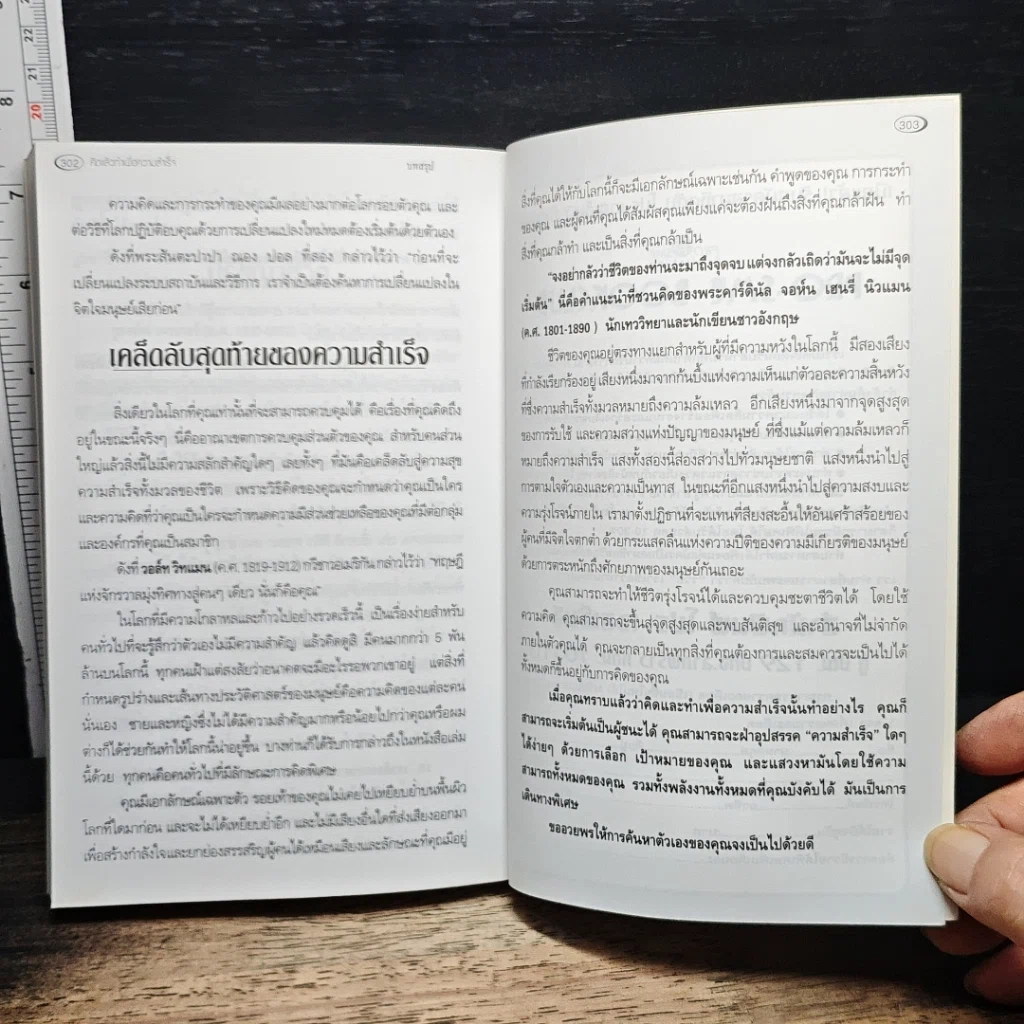 302 คิดแล้วทำเพื่อความสำเร็จ
บทสรุป
ความคิดและการกระทำของคุณมีผลอย่างมากต่อโลกรอบตัวคุณ และ
ต่อวิธีที่โลกปฏิบัติตอบคุณด้วยการเปลี่ยนแปลงใหม่หมดต้องเริ่มต้นด้วยตัวเอง
ดังที่พระสันตะปาปา ฌอง ปอล ที่สอง กล่าวไว้ว่า "ก่อนที่จะ
เปลี่ยนแปลงระบบสถาบันและวิธีการ เราจำเป็นต้องค้นหาการเปลี่ยนแปลงใน
จิตใจมนุษย์เสียก่อน"
เคล็ดลับสุดท้ายของความสำเร็จ
สิ่งเดียวในโลกที่คุณเท่านั้นที่จะสามารถควบคุมได้ คือเรื่องที่คุณคิดถึง
อยู่ในขณะนี้จริงๆ นี่คืออาณาเขตการควบคุมส่วนตัวของคุณ สำหรับคนส่วน
ใหญ่แล้วสิ่งนี้ไม่มีความสลักสำคัญใดๆ เลยทั้งๆ ที่มันคือเคล็ดลับสู่ความสุข
ความสำเร็จทั้งมวลของชีวิต เพราะวิธีคิดของคุณจะกำหนดว่าคุณเป็นใคร
และความคิดที่ว่าคุณเป็นใครจะกำหนดความมีส่วนช่วยเหลือของคุณที่มีต่อกลุ่ม
และองค์กรที่คุณเป็นสมาชิก
ดังที่ วอล์ท วิทแมน (ค.ศ. 1819-1912) กวีชาวอเมริกัน กล่าวไว้ว่า "ทฤษฎี
แห่งจักรวาลมุ่งทิศทางสู่คนๆ เดียว นั่นก็คือคุณ"
ในโลกที่มีความโกลาหลและก้าวไปอย่างรวดเร็วนี้ เป็นเรื่องง่ายสำหรับ
คนทั่วไปที่จะรู้สึกว่าตัวเองไม่มีความสำคัญ แล้วคิดดูสิ มีคนมากกว่า 5 พัน
ล้านบนโลกนี้ ทุกคนเฝ้าแต่สงสัยว่าอนาคตจะมีอะไรรอพวกเขาอยู่ แต่สิ่งที่
กำหนดรูปร่างและเส้นทางประวัติศาสตร์ของมนุษย์คือความคิดของแต่ละคน
นั่นเอง ชายและหญิงซึ่งไม่ได้มีความสำคัญมากหรือน้อยไปกว่าคุณหรือผม
ต่างก็ได้ช่วยกันทำให้โลกนี้น่าอยู่ขึ้น บางท่านก็ได้รับการกล่าวถึงในหนังสือเล่ม
นี้ด้วย ทุกคนคือคนทั่วไปที่มีลักษณะการคิดพิเศษ
คุณมีเอกลักษณ์เฉพาะตัว รอยเท้าของคุณไม่เคยไปเหยียบย่ำบนพื้นผิว
โลกที่ใดมาก่อน และจะไม่ได้เหยียบย่ำอีก และไม่มีเสียงอื่นใดที่ส่งเสียงออกมา
เพื่อสร้างกำลังใจและยกย่องสรรเสริญผู้คนได้เหมือนเสียงและลักษณะที่คุณมีอยู่
303
สิ่งที่คุณได้ให้กับโลกนี้ก็จะมีเอกลักษณ์เฉพาะเช่นกัน คำพูดของคุณ การกระทำ
ของคุณ และผู้คนที่คุณได้สัมผัสคุณเพียงแค่จะต้องฝันถึงสิ่งที่คุณกล้าฝัน ทำ
สิ่งที่คุณกล้าทำ และเป็นสิ่งที่คุณกล้าเป็น
"จงอย่ากลัวว่าชีวิตของท่านจะมาถึงจุดจบ แต่จงกลัวเถิดว่ามันจะไม่มีจุด
เริ่มต้น" นี่คือคำแนะนำที่ชวนคิดของพระคาร์ดินัล จอห์น เฮนรี่ นิวแมน
(ค.ศ. 1801-1890 ) นักเทววิทยาและนักเขียนชาวอังกฤษ
ชีวิตของคุณอยู่ตรงทางแยกสำหรับผู้ที่มีความหวังในโลกนี้ มีสองเสียง
ที่กำลังเรียกร้องอยู่ เสียงหนึ่งมาจากก้นบึ้งแห่งความเห็นแก่ตัวอละความสิ้นหวัง
ที่ซึ่งความสำเร็จทั้งมวลหมายถึงความล้มเหลว อีกเสียงหนึ่งมาจากจุดสูงสุด
ของการรับใช้ และความสว่างแห่งปัญญาของมนุษย์ ที่ซึ่งแม้แต่ความล้มเหลวก็
หมายถึงความสำเร็จ แสงทั้งสองนี้ส่องสว่างไปทั่วมนุษยชาติ แสงหนึ่งนำไปสู่
การตามใจตัวเองและความเป็นทาส ในขณะที่อีกแสงหนึ่งนำไปสู่ความสงบและ
ความรุ่งโรจน์ภายใน เรามาตั้งปฏิธานที่จะแทนที่สียงสะอื้นไห้อันเศร้าสร้อยของ
ผู้คนที่มีจิตใจตกต่ำ ด้วยกระแสคลื่นแห่งความปิติของความมีเกียรติของมนุษย์
ด้วยการตระหนักถึงศักยภาพของมนุษย์กันเถอะ
คุณสามารถจะทำให้ชีวิตรุ่งโรจน์ได้และควบคุมชะตาชีวิตได้ โดยใช้
ความคิด คุณสามารถจะขึ้นสู่จุดสูงสุดและพบสันติสุข และอำนาจที่ไม่จำกัด
ภายในตัวคุณได้ คุณจะกลายเป็นทุกสิ่งที่คุณต้องการและสมควรจะเป็นไปได้
ทั้งหมดก็ขึ้นอยู่กับการคิดของคุณ
เมื่อคุณทราบแล้วว่าคิดและทำเพื่อความสำเร็จนั้นทำอย่างไร คุณก็
สามารถจะเริ่มต้นเป็นผู้ชนะได้ คุณสามารถจะฝ่าอุปสรรค "ความสำเร็จ" ใดๆ
ได้ง่ายๆ ด้วยการเลือก เป้าหมายของคุณ และแสวงหามันโดยใช้ความ
สามารถทั้งหมดของคุณ รวมทั้งพลังงานทั้งหมดที่คุณบังคับได้ มันเป็นการ
เดินทางพิเศษ
ขออวยพรให้การค้นหาตัวเองของคุณจงเป็นไปด้วยดี
22
21
20
8
7
6